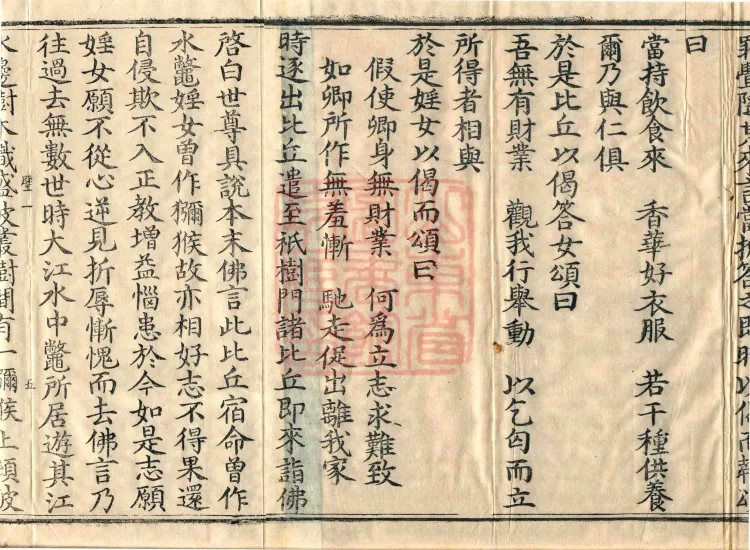 曰
當持飲食來　香華好衣服　若干種供養
爾乃與仁俱
於是比丘以偈答女頌曰
吾無有財業　觀我行舉動　以乞匃而立
所得者相與
於是婬女以偈而頌曰
假使卿身無財業　何爲立志求難致
如卿所作無羞慚　馳走促出離我家
時逐出比丘遣至祇樹門諸比丘即來詣佛
啓白世尊具說本末佛言此比丘宿命曾作
水鼈婬女曾作獼猴故亦相好志不得果還
自侵欺不入正教增益惱患於今如是志願
婬女願不從心逆見折辱慚愧而去佛言乃
往過去無數世時大江水中鼈所居遊其江
壁一　五
水邊樹木熾盛彼叢樹間有一獼猴止頂彼